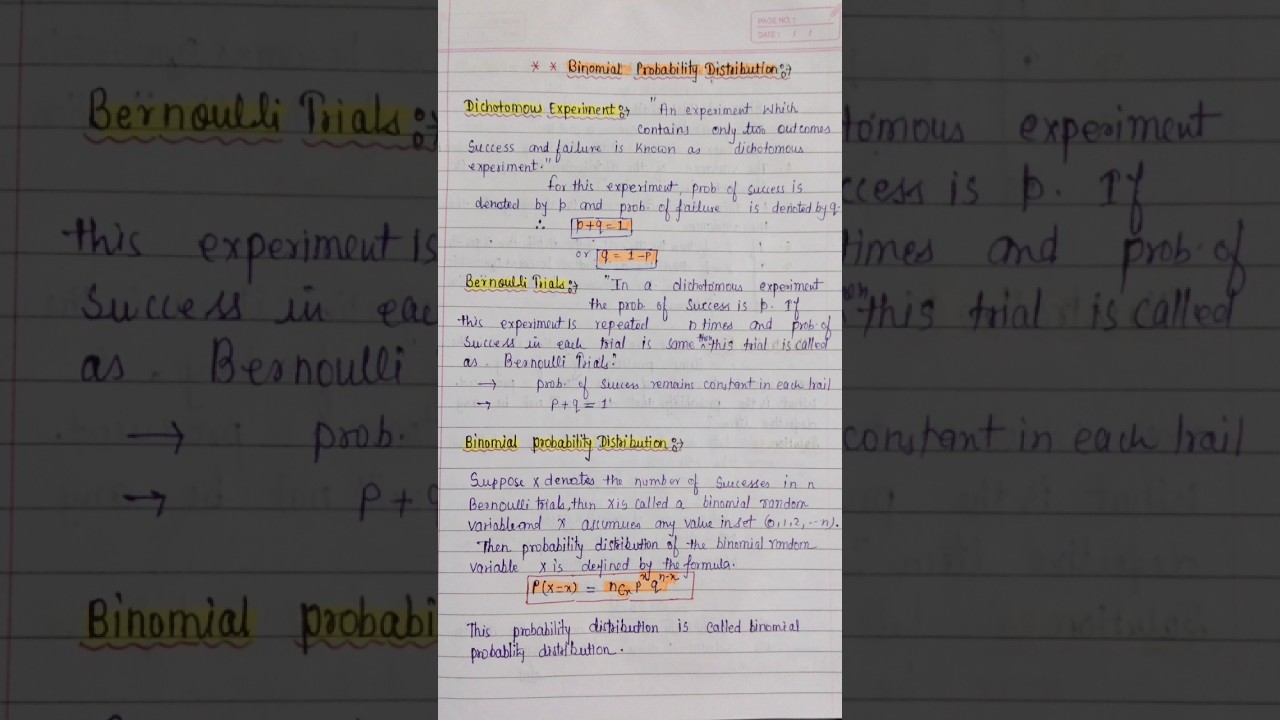 PAGE NO.:
DATE: / /
* * Binomial Probability Distribution :→
Dichotomous Experiment :→ "An experiment which
contains only two outcomes
Success and failure is known as dichotomous
experiment."
for this experiment, prob of success is
denoted by p and prob. of failure is denoted by q.
∴ p+q = 1
or q = 1-p
Bernoulli Trials :→ "In a dichotomous experiment
the prob. of success is p. If
this experiment is repeated n times and prob. of
Success in each trial is same then this trial is called
as Bernoulli Trials."
→ prob. of success remains constant in each trail
→ p+q = 1
Binomial probability Distribution :→
Suppose x denotes the number of Sucesses in n
Bernoulli trials, then x is called a binomial random
variable and x assumues any value in set (0,1,2, ... n).
Then probability distribution of the binomial random
variable x is defined by the formula.
P(x=x) = nCx p^x q^n-x
This probability distribution is called binomial
probablity distribution.
Bernoulli Trials :→
this experiment is
Success in eac
as Bernoulli
→ prob.
→ p+q
Binomial probabi
tomous experiment
ccess is p. If
times and prob. of
this trial is called
constant in each trail